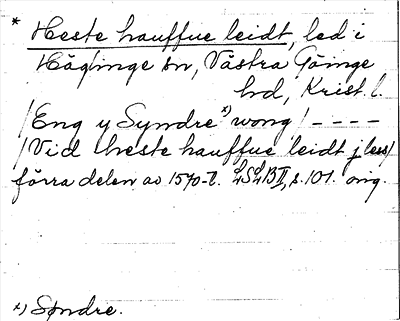 * Heste hauffue leidt, led i
Häglinge sn, Västra Göinge
hd, Krist. l.
/Eng y Syndre x) wong/ - - - -
/Vid heste hauffue leidt j les/
förra delen av 1570-t. LSLB II, s. 101. orig.
x) Søndre.